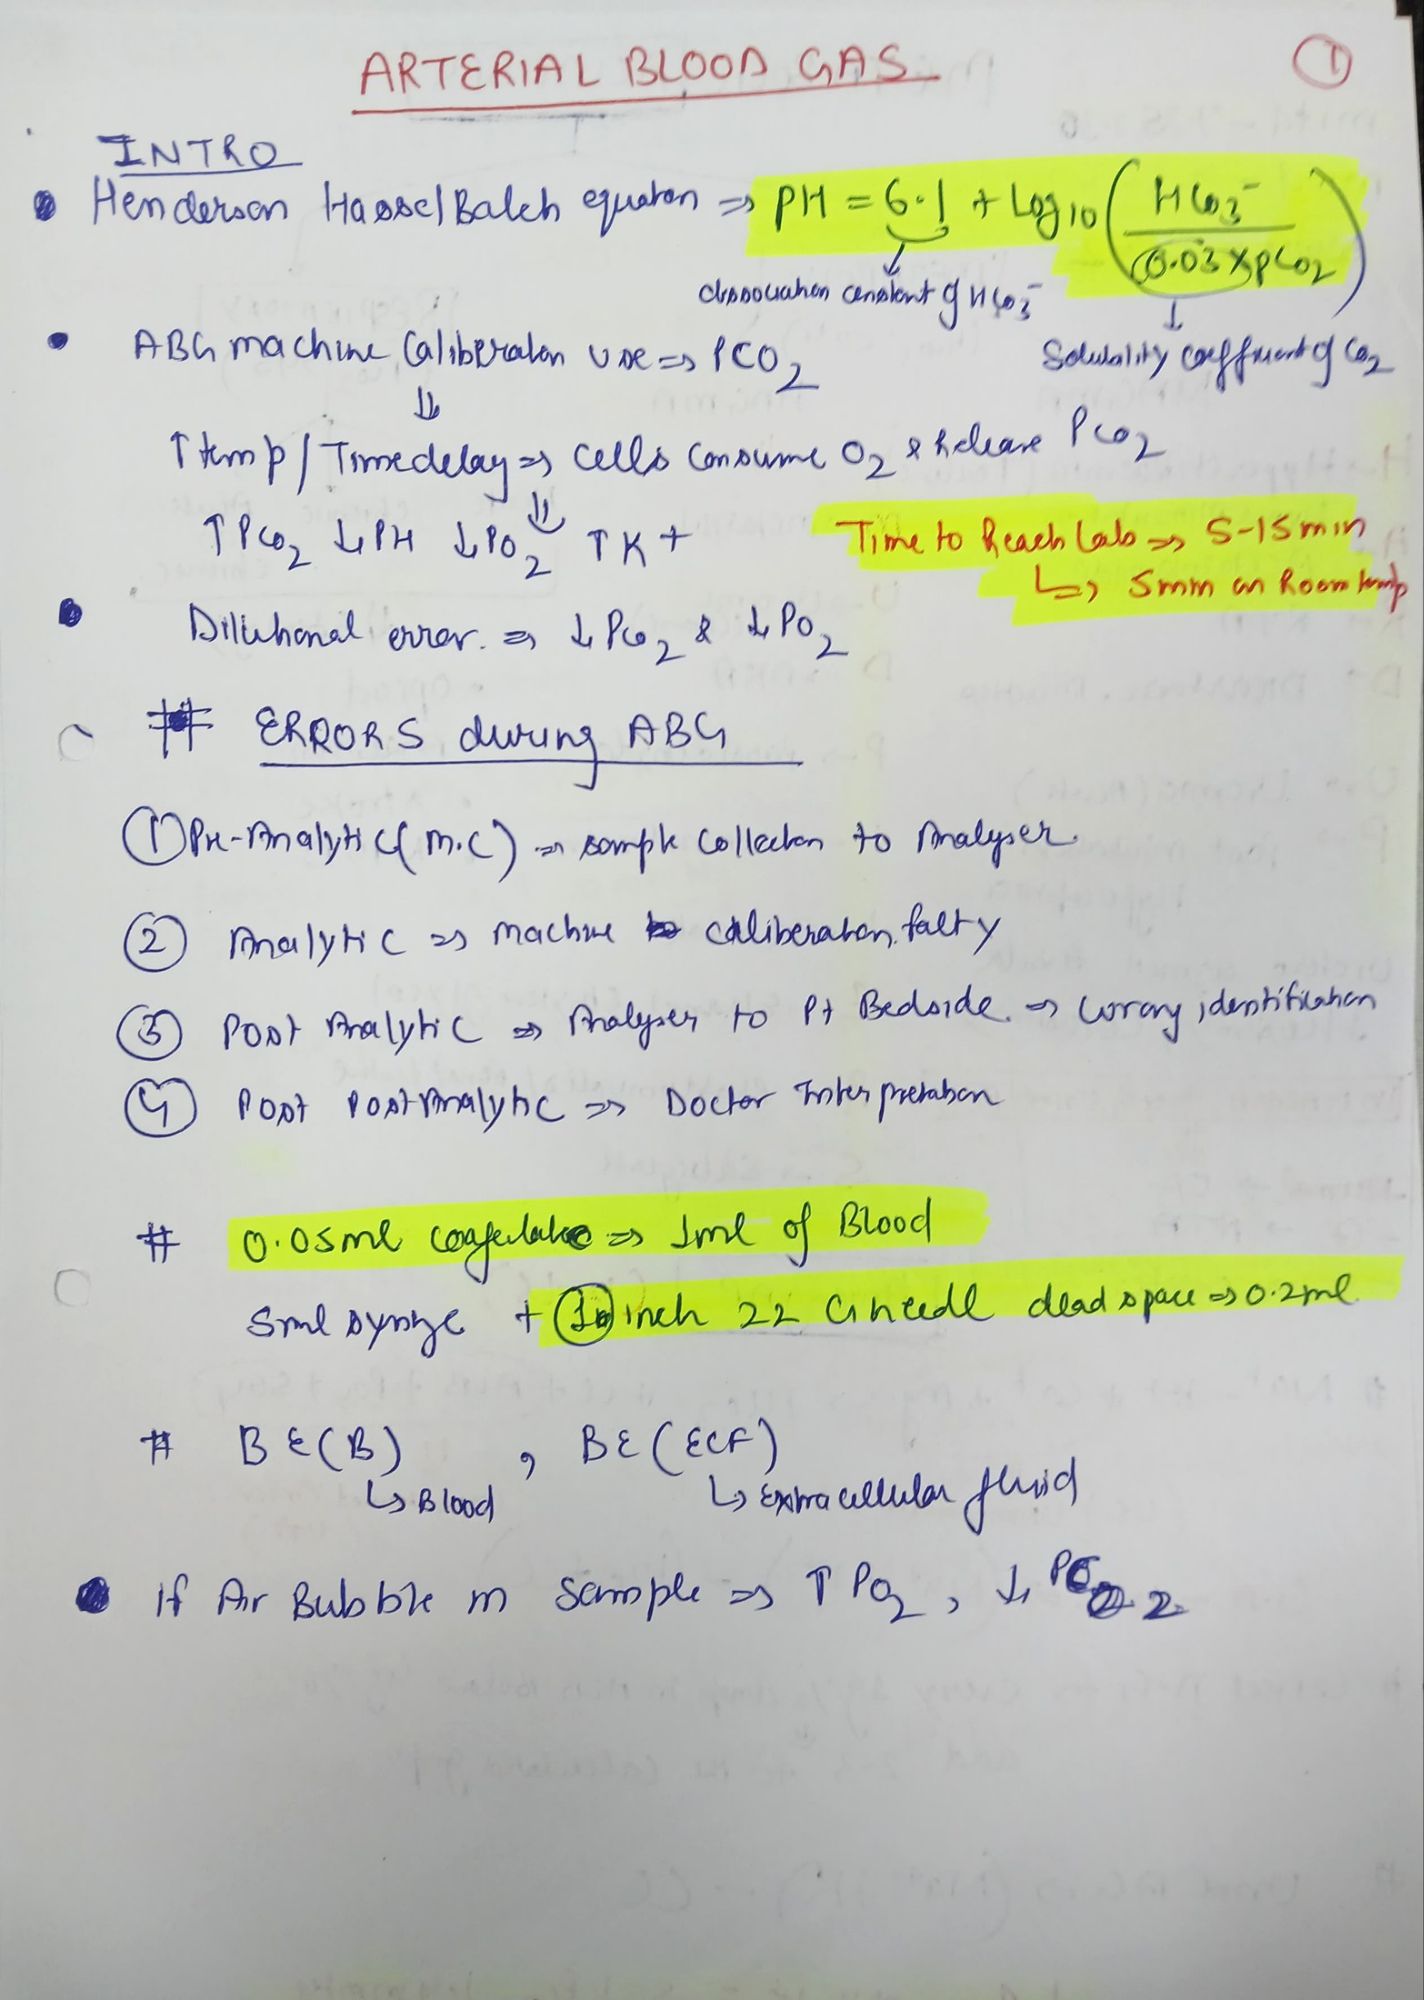 ARTERIAL BLOOD GAS
1
INTRO
• Henderson HasselBalch equaton ⇒ PH = 6.1 + Log10 ( HCO3⁻ / 0.03 x pCO2 )
dissociation constant of HCO3⁻
Solubility coefficient of CO2
• ABG machine Caliberation use ⇒ PCO2
⇓
↑ temp / Time delay ⇒ cells consume O2 & Release PCO2
⇓
↑ PCO2 ↓ PH ↓ PO2 ↑ K+
Time to Reach Lab ⇒ 5-15 min
↳ 5min on Room temp
• Dilutional error. ⇒ ↓ PCO2 & ↓ PO2
# ERRORS during ABG
① Pre-Analytic (M.C) ⇒ sample Collection to Analyser
② Analytic ⇒ machine caliberation falty
③ Post Analytic ⇒ Analyser to Pt Bedside ⇒ wrong identification
④ Post Post Analytic ⇒ Doctor Interpretation
# 0.05ml ⇒ 1ml of Blood
5ml syringe + 1 inch 22 G needle dead space ⇒ 0.2ml
# BE(B) , BE(ECF)
↳ Blood ↳ Extracellular fluid
• If Air Bubble in Sample ⇒ ↑ PO2, ↓ PCO2